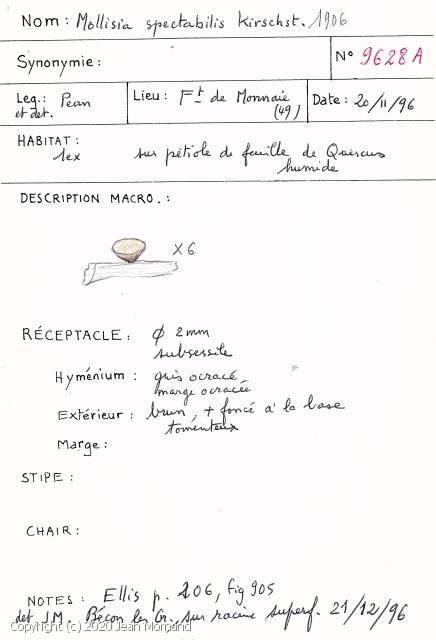 Nom : Mollisia spectabilis Kirschst. 1906
Synonymie :
N° 9628 A
Leg. : Pean
et det.
Lieu : Ft de Monnaie
(49)
Date : 20/11/96
HABITAT :
1ex sur pétiole de feuille de Quercus
humide
DESCRIPTION MACRO. :
X 6
RÉCEPTACLE : ϕ 2mm
subsessile
Hyménium : gris ocracé
marge ocracée
Extérieur : brun, + foncé à la base
tomenteux
Marge :
STIPE :
CHAIR :
NOTES : Ellis p. 206, fig 905
det J.M. Bécon les Gr., sur racine superf. 21/12/96
Copyright (c) 2020 Jean Mornand